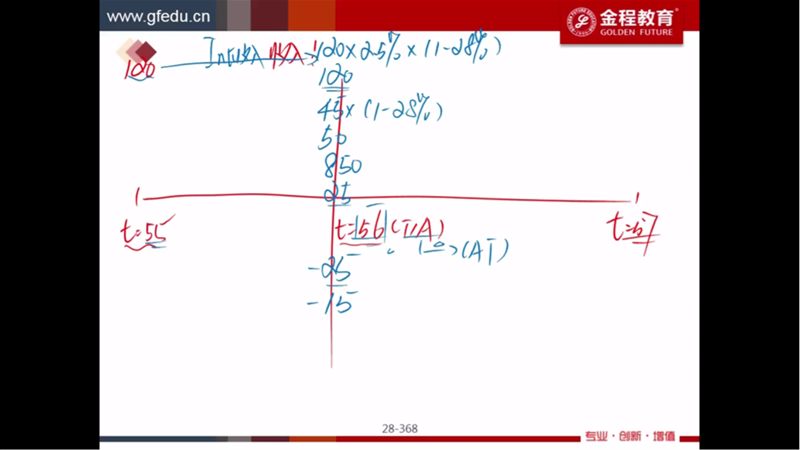 www.gfedu.cn
金程教育
GOLDEN FUTURE
120 收入 120×2.5%×(1-28%)
120
45×(1-28%)
50
850
25
t=55 t=56 t=57
(AT)
-25
-15
28-368
专业·创新·增值